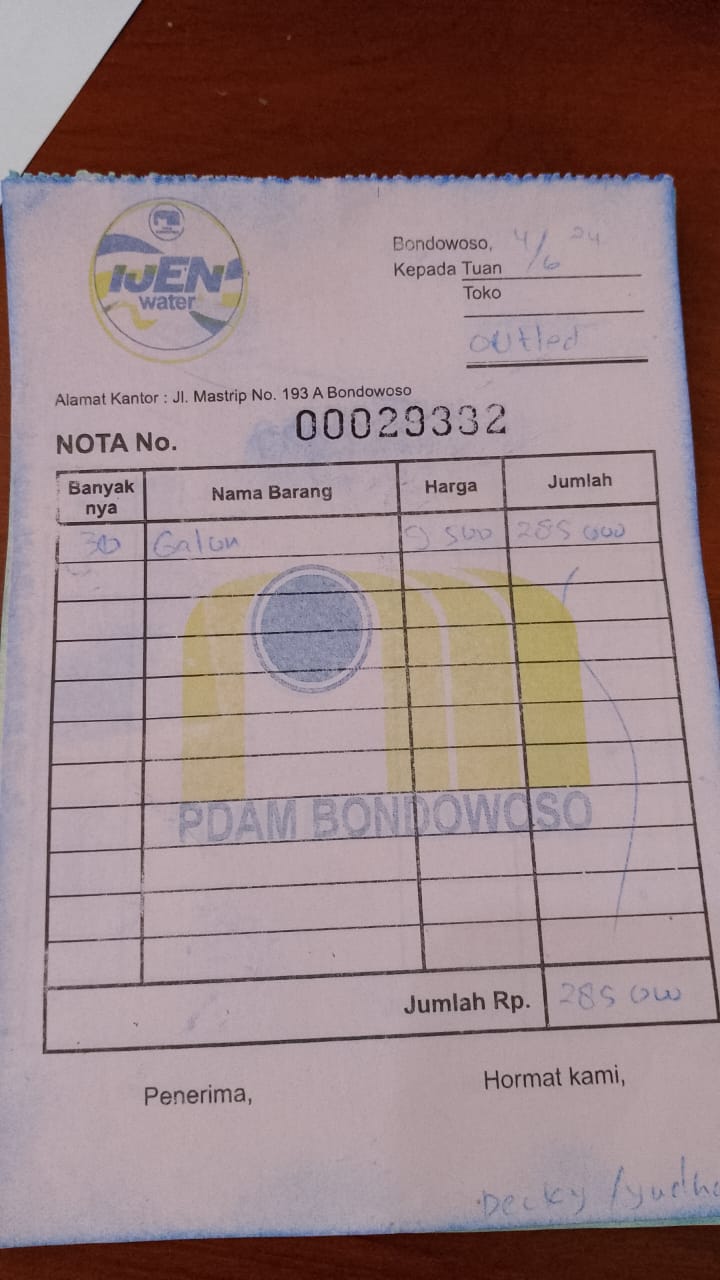 IJEN
water
Bondowoso, 4/6 24
Kepada Tuan
Toko
outled
Alamat Kantor : Jl. Mastrip No. 193 A Bondowoso
NOTA No. 00029332
Banyak nya Nama Barang Harga Jumlah
30 Galon 9 500 285 000
PDAM BONDOWOSO
Jumlah Rp. 285 000
Penerima, Hormat kami,
Decky / yudha